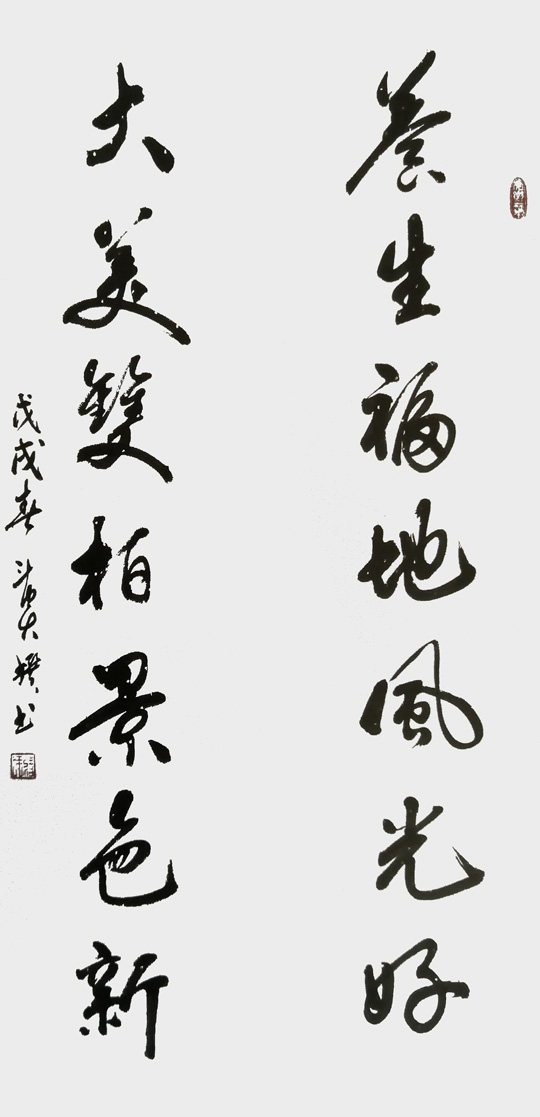 養生福地風光好
大美雙柏景色新
戊戌春
書